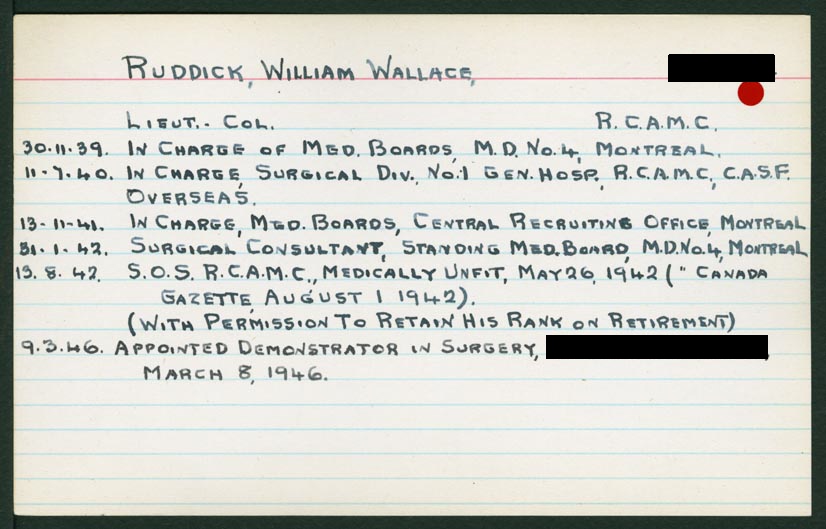 RUDDICK, WILLIAM WALLACE,
LIEUT.- COL. R.C.A.M.C.
30.11.39. IN CHARGE OF MED. BOARDS, M.D. No. 4, MONTREAL.
11-7.40. IN CHARGE, SURGICAL DIV., No.1 GEN. HOSP., R.C.A.M.C., C.A.S.F.
OVERSEAS.
13-11-41. IN CHARGE, MED. BOARDS, CENTRAL RECRUITING OFFICE, MONTREAL
31.1.42. SURGICAL CONSULTANT, STANDING MED. BOARD, M.D. No.4, MONTREAL
13.8.42. S.O.S. R.C.A.M.C., MEDICALLY UNFIT, MAY 26, 1942 (" CANADA
GAZETTE, AUGUST 1 1942).
(WITH PERMISSION TO RETAIN HIS RANK ON RETIREMENT)
9.3.46. APPOINTED DEMONSTRATOR IN SURGERY,
MARCH 8, 1946.